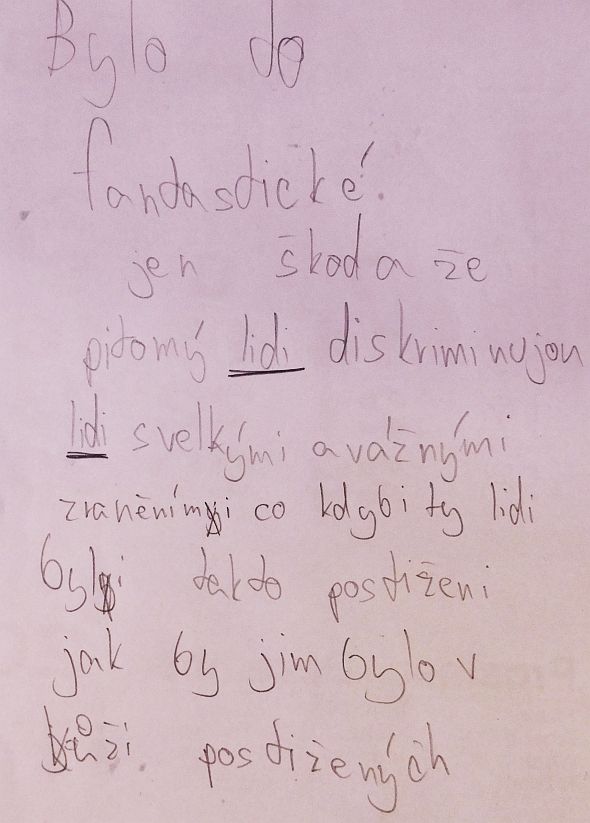 Bylo to
fantastické.
jen škoda že
pitomý lidi diskriminujou
lidi svelkými avážnými
zraněními co kdybi ty lidi
byli takto postiženi
jak by jim bylo v
kůži postižených